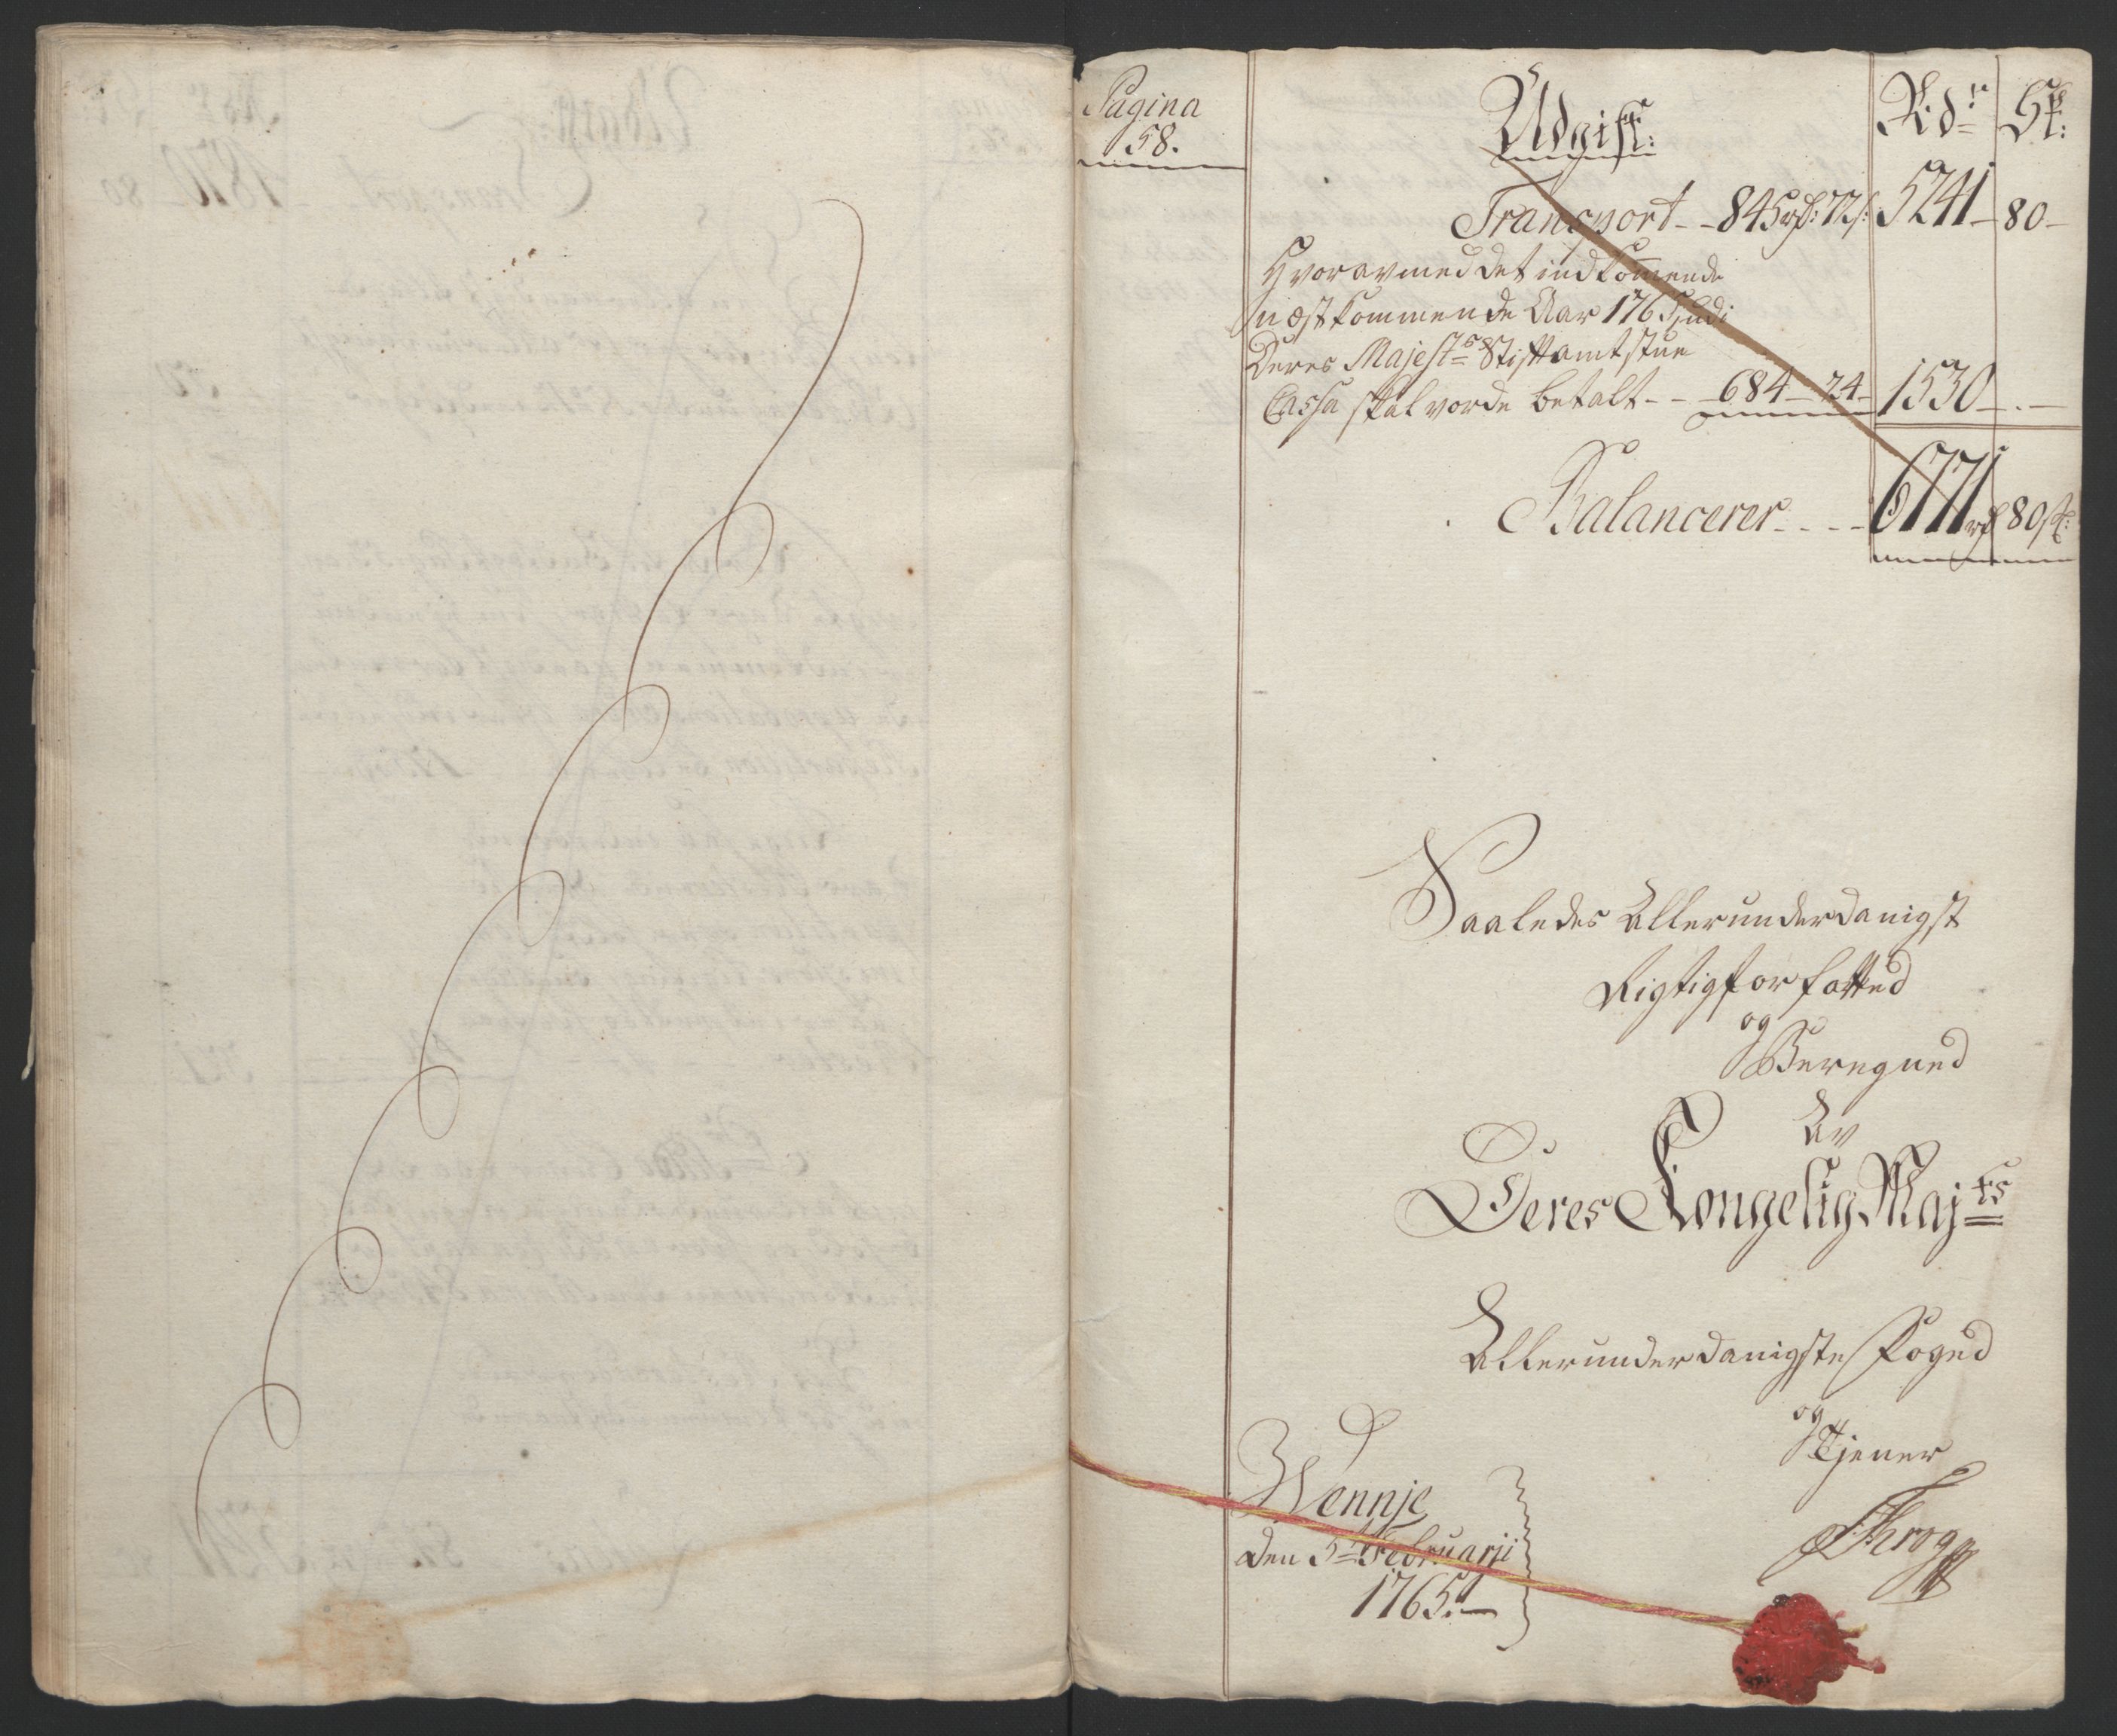 Pagina
58.
Udgift:
Rdr
Sk:
Transport - - 845 rd: 72 s: 5241 - 80 -
Hvoravmed det indkommende
næstkommende Aar 1765 udi
Deres Majestts Stiftamtstue
Cassa skal vorde betalt - - 684 - 24 - 1530 - . -
Balancerer - - - - 6771 rd 80 sk:
Saaledes Allerunderdanigst
Rigtig forfatted
og
Beregned
Av
Deres Kongelig Majts
Allerunderdanigste Foged
og
Tjener
Wennje
den 5te Februarji
1765. -